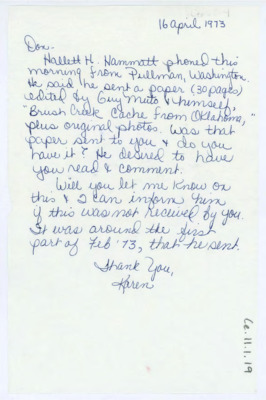 16 April 1973
Don.
Hallett H. Hammatt phoned this
morning from Pullman, Washington.
He said he sent a paper (30 pages)
edited by Guy Muto & himself,
"Brush Creek Cache from Oklahoma,"
plus original photos. Was that
paper sent to you & do you
have it? He desired to have
you read & comment.
Will you let me know on
this & I can inform him
if this was not received by you.
It was around the first
part of Feb '73, that he sent.
Thank You,
Karen
6e.11.1.19